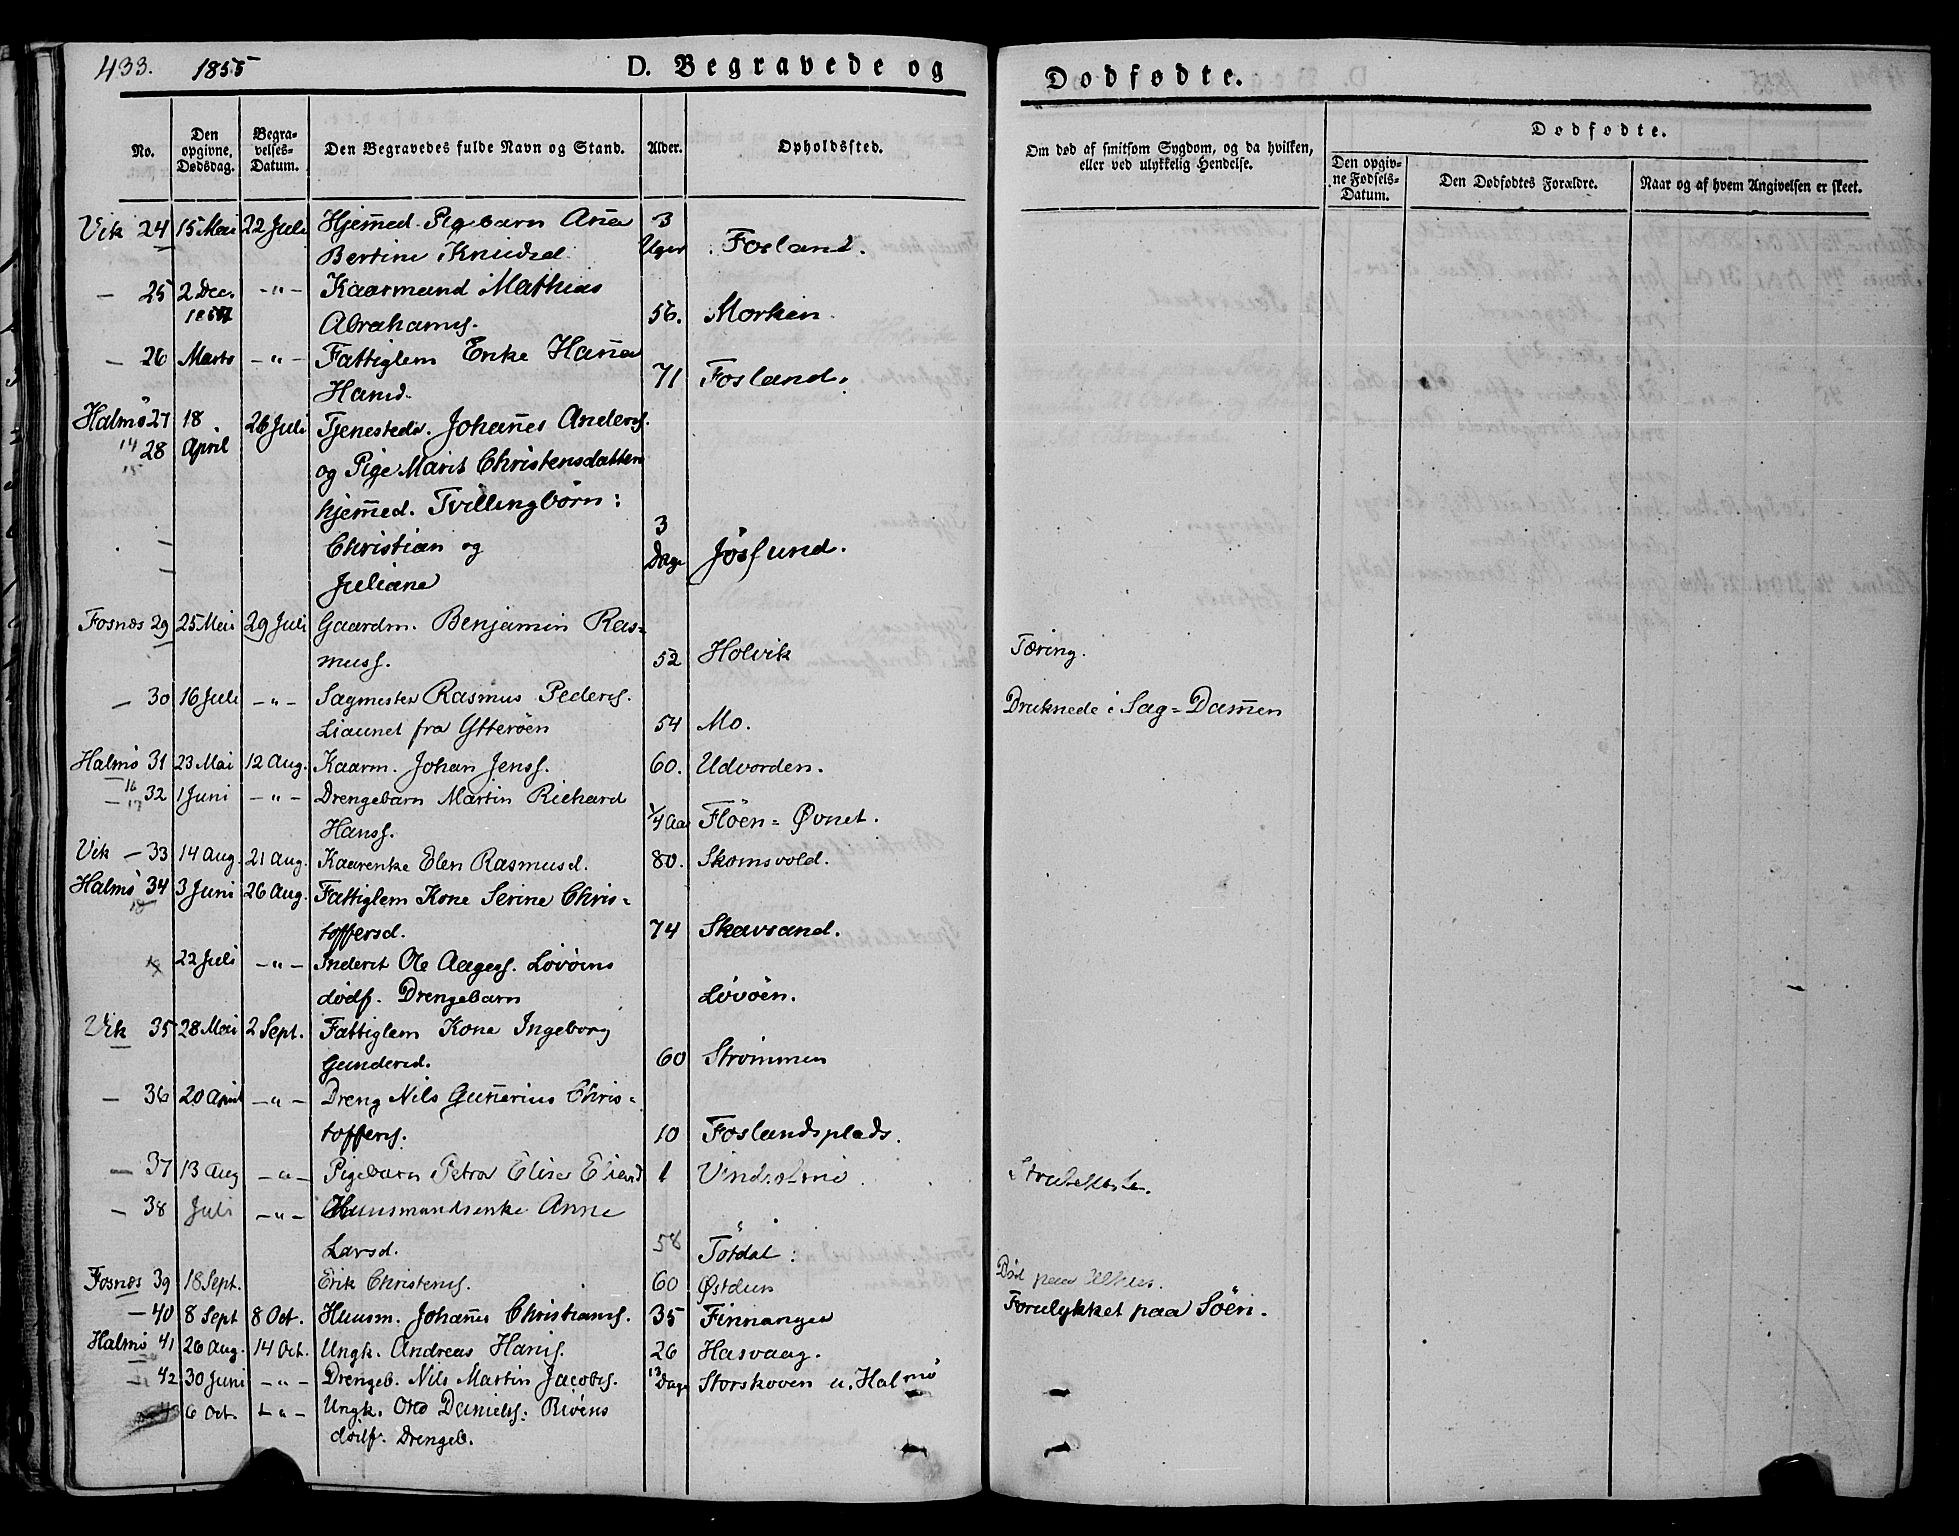 433. 1855 D. Begravede og Dødfødte.
No. Den opgivne Dødsdag. Begravelses-Datum. Den Begravedes fulde Navn og Stand. Alder. Opholdssted. Om død af smitsom Sygdom, og da hvilken, eller ved ulykkelig Hendelse.
Dødfødte.
Den opgivne Fødsels-Datum. Den Dødfødtes Forældre. Naar og af hvem Angivelsen er skeet.
Vik 24 15 Mai 22 Juli Hjem̄ed. Pigebarn An̄a 3
Bertine Knudsd. Uger Fosland.
— 25 2 Dec. —"— Kaarmand Mathias
Abrahams. 56. Morken.
— 26 Marts —"— Fattiglem Enke Han̄a
Hansd. 71 Fosland.
Halmø 27 18 26 Juli Tjenestedr. Johan̄es Anders.
14 28 April
15 og Pige Marit Christensdatters
hjem̄ed. Tvillingbørn: 3
— Christian og Dage Jøssund.
— Juliane
Fosnæs 29 25 Mai 29 Juli Gaardm. Benjamin Ras-
muss. 52 Holvik Tæring.
— 30 16 Juli —"— Sagmester Rasmus Peders.
Liaunet fra Ytterøen 54 Mo. Druknede i Sag-Dam̄en
Halmø 31 23 Mai 12 Aug. Kaarm. Johan Jenss. 60. Udvorden.
16
— 32 1 Juni —"— Drengebarn Martin Richard
17 Hanss. 1/4 Aar Fløen-Øvnet.
Vik — 33 14 Aug. 21 Aug. Kaarenke Elen Rasmusd. 80. Skomsvold.
Halmø 34 3 Juni 26 Aug. Fattiglem Kone Serine Chris-
18 toffersd. 74 Skavsand.
22 Juli —"— Inderst Ole Aagess. Løvøens
dødf. Drengebarn Løvøen.
Vik 35 28 Mai 2 Sept. Fattiglem Kone Ingeborg
Gundersd. 60 Strømmen
— 36 20 April —"— Dreng Nils Gun̄erius Chris-
toffers. 10 Foslandsplads.
— 37 13 Aug —"— Pigebarn Petra Elise Eliasd 1
— 38 Juli —"— Huusmandsenke Anne
Larsd. 58 Tøtdal:
Fosnæs 39 18 Sept. Erik Christens. 60 Østdun Død paa
— 40 8 Sept 8 Oct. Huusm. Johan̄es Christians. 35 Finnanger Forulykket paa Søen.
Halmø 41 26 Aug. 14 Oct. Ungk. Andreas Hans. 26 Hasvaag.
— 42 30 Juni —"— Drengeb. Nils Martin Jacobs. 13 Dage Storskoven u. Halmø
6 Oct. —"— Ungk. Otto Daniels: Riøens
dødf. Drengeb.